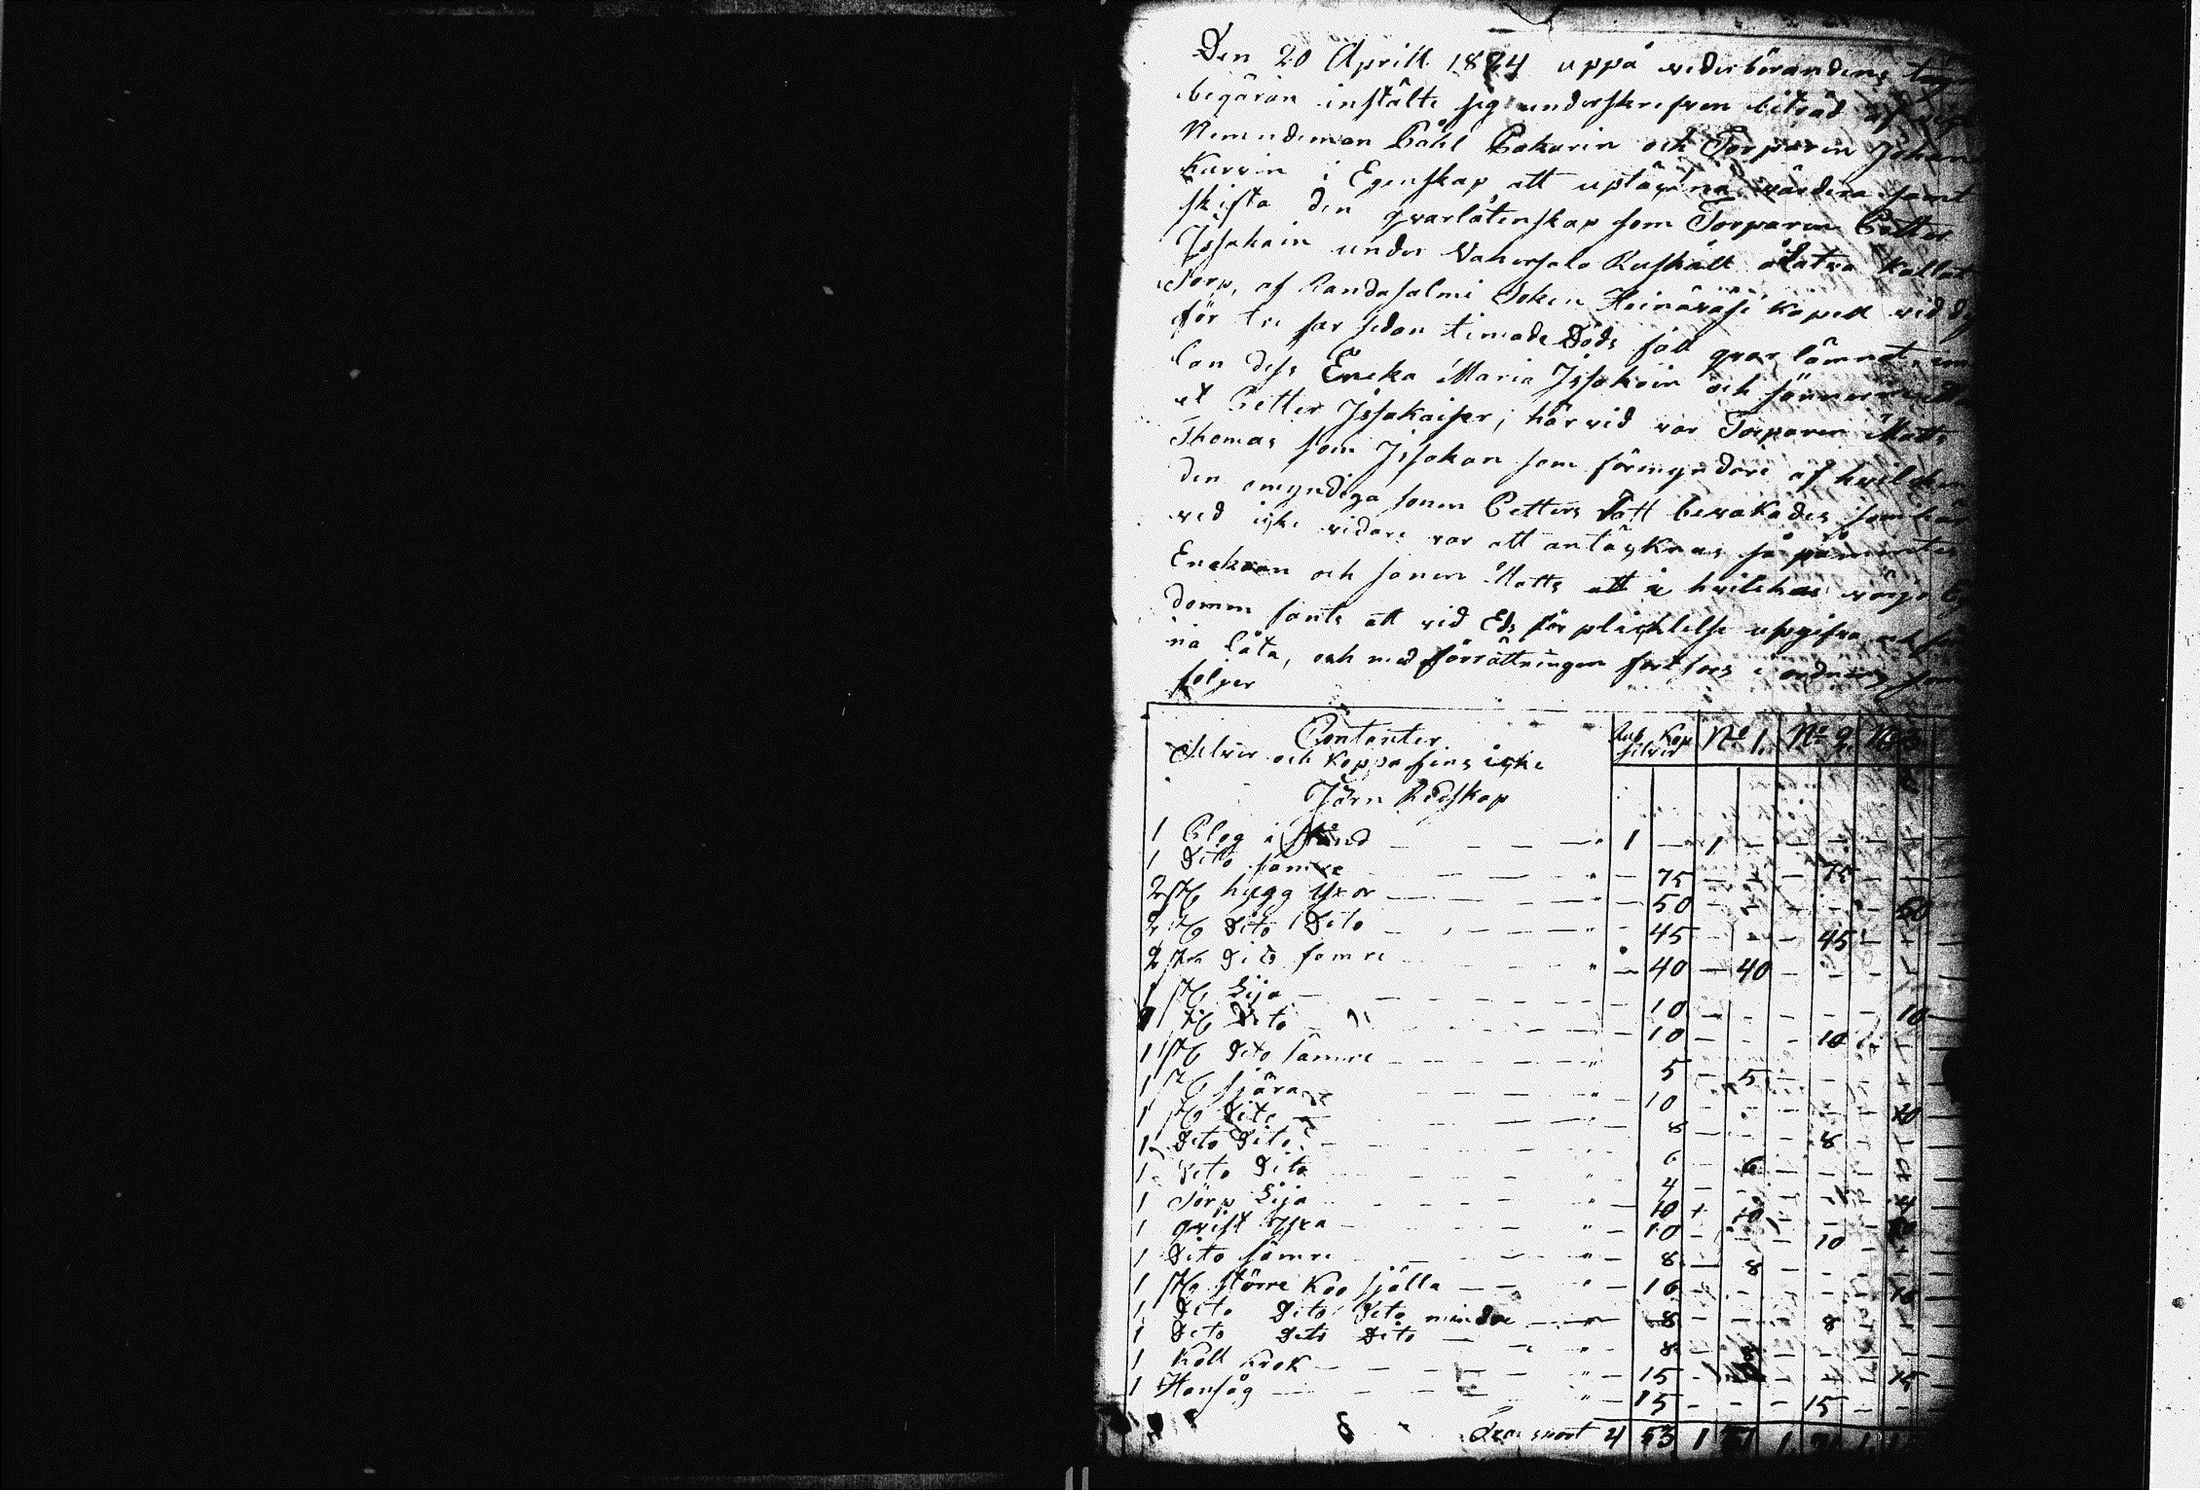 Den 20 Aprill 1824 uppå wederbörandens
begäran instälte sig underskrefven biträd af
Nemndeman Påhl Pakarin och Torparen Johan
Karvin i Egenskap att uptäkna wärdera samt
skifta den qvarlåtenskap som Torparen Petter
Issakain under Vahersalo Rusthåll Latva kallat
Torp, af Randasalmi Soken Heinäväsi Kapell wid
för tre år sedan timade Döds fall qvar lämnat
lan dess Encka Maria Issakain och sönnerne
et Petter Issakaiser, härvid var Torparen Matts
Thomas son Issakan som förmyndare af hvilcken
den omyndiga sonen Petters Rätt bevakades som här
ved icke vidare var att antäknas så påmintes
Enckan och sonen Matts att i hvilckas wårjo
domen fants att vid Eds förplicktelse upgifva och
na låta, och med förrättningen fortfors i ordning som
följer
Contanter Rub Kop silver No 1. No 2. No 3
Silver och Koppa fins icke
Järn Redskap
1 Plog i stånd 1 — 1 —
1 Dito sämre — 75 — 75
2 st hygg yxor — 50 — 50
2 st Dito Dito — 45 — 45
2 st Dito sämre — 40 — 40
1 st Lija — 10 — 10
1 st Dito — 10 — 10
1 st Dito sämre — 5 — 5
1 st skjära — 10 — 10
1 st Dito — 8 — 8
1 Dito Dito — 6 — 6
1 Dito Dito — 4 — 4
1 Törp Lija — 10 — 10
1 qvist Yxa — 10 — 10
1 Dito sämre — 8 — 8
1 st större Koo själla — 16 — 16
1 Dito Dito Dito mindre — 8 — 8
1 Dito Dito Dito — 8
1 Koll krok — 15 — 15
1 Hansåg — 15 — 15
Transport 4 53 1